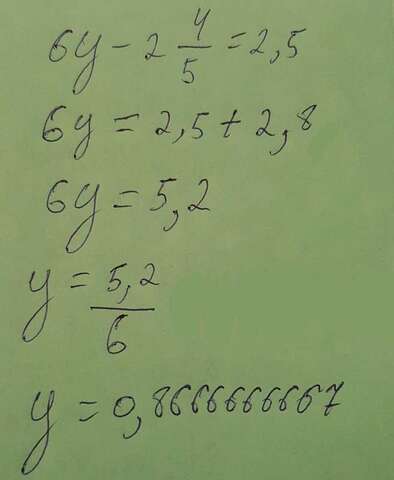 6y - 2 4/5 = 2,5
6y = 2,5 + 2,8
6y = 5,2
y = 5,2/6
y = 0,8666666667